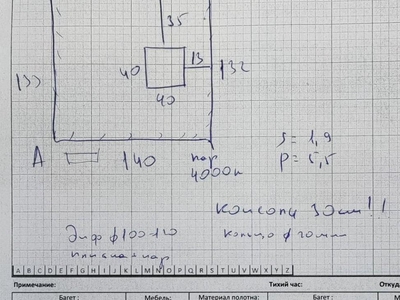 35
13
40
133
132
40
A
140
пар
4000к
S = 1,9
P = 5,5
консоли 30см!!
Диф ф 100-120
кольцо ф 20мм
A B C D E F G H I J K L M N O P Q R S T U V W X Y Z
Примечание:
Тихий час:
Багет :
Мебель:
Материал полотна:
Багет :